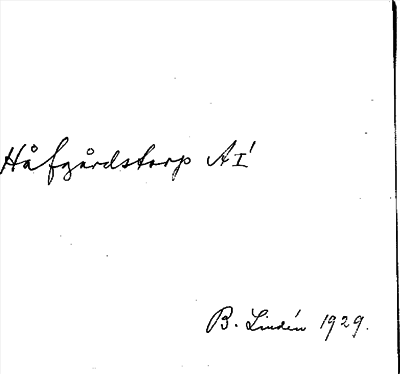 Håfgårdstorp AI'
B. Lindén 1929.